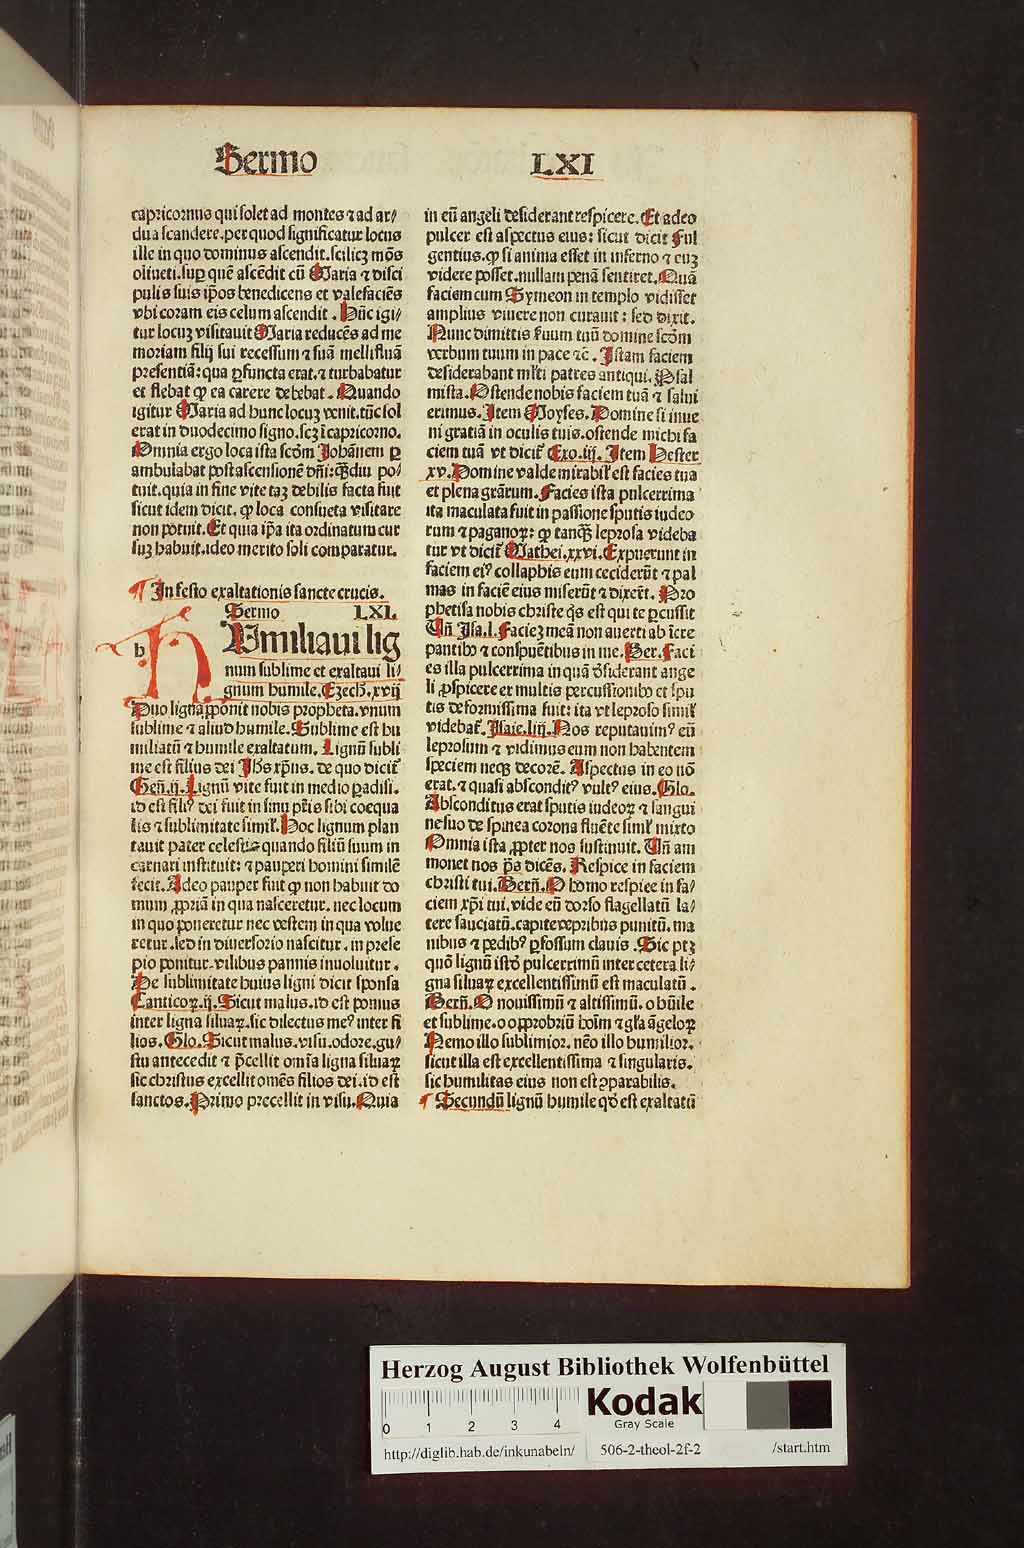 Sermo LXI
capricornus qui solet ad montes ⁊ ad ar⸗
dua scandere. per quod significatur locus
ille in quo dominus ascendit. scilicꝫ mōs
oliueti. sup quē ascēdit cū Maria ⁊ disci
pulis suis ip̄os benedicens et valefaciēs
vbi coram eis celum ascendit. Hūc igi⸗
tur locuꝫ visitauit Maria reducēs ad me
moriam filij sui recessum ⁊ suā mellifluā
presentiā: qua ꝑfuncta erat. ⁊ turbabatur
et flebat ꝙ ea carere debebat. Quando
igitur Maria ad hunc locuꝫ venit. tūc sol
erat in duodecimo signo. scꝫ ī capricorno.
Omnia ergo loca ista scd̄m Johānem ꝑ
ambulabat post ascensionē dn̄i: qͣꝫdiu po⸗
tuit. quia in fine vite taꝫ debilis facta fuit
sicut idem dicit. ꝙ loca consueta visitare
non potuit. Et quia ip̄a ita ordinatum cur
suꝫ habuit. ideo merito soli comparatur.
¶ In festo exaltationis sancte crucis.
Sermo LXI.
h Vmiliaui lig
num sublime et exaltaui li⸗
gnum humile. Ezech. xvij
Duo ligna ꝓponit nobis propheta. vnum
sublime ⁊ aliud humile. Sublime est hu
miliatū ⁊ humile exaltatum. Lignū subli
me est filius dei Jhs xp̄us. de quo dicit᷑
Geñ. ij. Lignū vite fuit in medio ꝑadisi.
id est filiꝰ dei fuit in sinu pr̄is sibi coequa
lis ⁊ sublimitate simil'. Hoc lignum plan
tauit pater celestis quando filiū suum in
carnari instituit: ⁊ pauperi homini similē
fecit. Adeo pauper fuit ꝙ non habuit do
mum ꝓpriā in qua nasceretur. nec locum
in quo poneretur nec vestem in qua volue
retur. sed in diuersorio nascitur. in prese
pio ponitur. vilibus pannis inuoluitur.
De sublimitate huius ligni dicit sponsa
Canticoꝝ. ij. Sicut malus. id est pomus
inter ligna siluaꝝ. sic dilectus meꝰ inter fi
lios. Glo. Sicut malus. visu. odore. gu⸗
stu antecedit ⁊ p̄cellit om̄ia ligna siluaꝝ
sic christus excellit omēs filios dei. id est
sanctos. Primo precellit in visu. Quia
in eū angeli desiderant respicere. Et adeo
pulcer est aspectus eius: sicut dicit Ful
gentius. ꝙ si anima esset in inferno ⁊ euꝫ
videre posset. nullam penā sentiret. Quā
faciem cum Symeon in templo vidisset
amplius viuere non curauit: sed dixit.
Nunc dimittis s̄uum tuū domine scd̄m
verbum tuum in pace ⁊c̄. Istam faciem
desiderabant ml̄ti patres antiqui. Psal
mista. Ostende nobis faciem tuā ⁊ salui
erimus. Item Moyses. Domine si inue
ni gratiā in oculis tuis. ostende michi fa
ciem tuā vt dicit᷑ Exo. iij. Item Hester
xv. Domine valde mirabil' est facies tua
et plena gr̄arum. Facies ista pulcerrima
ita maculata fuit in passione sputis iudeo
rum ⁊ paganoꝝ: ꝙ tanqͣꝫ leprosa videba
tur vt dicit᷑ Mathei. xxvi. Expuerunt in
faciem eiꝰ collaphis eum ceciderūt ⁊ pal
mas in faciē eius miserūt ⁊ dixer̄t. Pro
phetisa nobis christe qͥs est qui te ꝑcussit
Vn̄ Isa. l. Facieꝫ meā non auerti ab īcre
pantibꝰ ⁊ conspuētibus in me. Ber. Faci
es illa pulcerrima in quā d̓siderant ange
li ꝓspicere ex multis percussionibꝰ et spu
tis deformissima fuit: ita vt leproso simil'
videbat᷑. Isaie. liij. Nos reputauimꝰ eū
leprosum ⁊ vidimus eum non habentem
speciem neqꝫ decorē. Aspectus in eo nō
erat. ⁊ quasi absconditꝰ vultꝰ eius. Glo.
Absconditus erat sputis iudeoꝝ ⁊ sangui
ne suo de spinea corona fluēte simul mixto
Omnia ista ꝓpter nos sustinuit. Vn̄ am
monet nos p̄s dicēs. Respice in faciem
christi tui. Berñ. O homo respice in fa⸗
ciem xp̄i tui. vide eū dorso flagellatū la⸗
tere sauciatū. capite vepribus punitū. ma
nibus ⁊ pedibꝰ ꝑfossum clauis. Sic ptꝫ
quō lignū istd̓ pulcerrimū inter cetera li⸗
gna siluaꝝ excellentissimū est maculatū.
Berñ. O nouissimū ⁊ altissimū. o hūile
et sublime. o opprobriū hoīm ⁊ gl'ia āgeloꝝ
Nemo illo sublimior. nēo illo humilior.
sicut illa est excellentissima ⁊ singularis.
sic humilitas eius non est ꝯparabilis.
¶ Secundū lignū humile qd̓ est exaltatū
Herzog August Bibliothek Wolfenbüttel
0 1 2 3 4
Kodak
Gray Scale
http://diglib.hab.de/inkunabeln/ 506-2-theol-2f-2 /start.htm